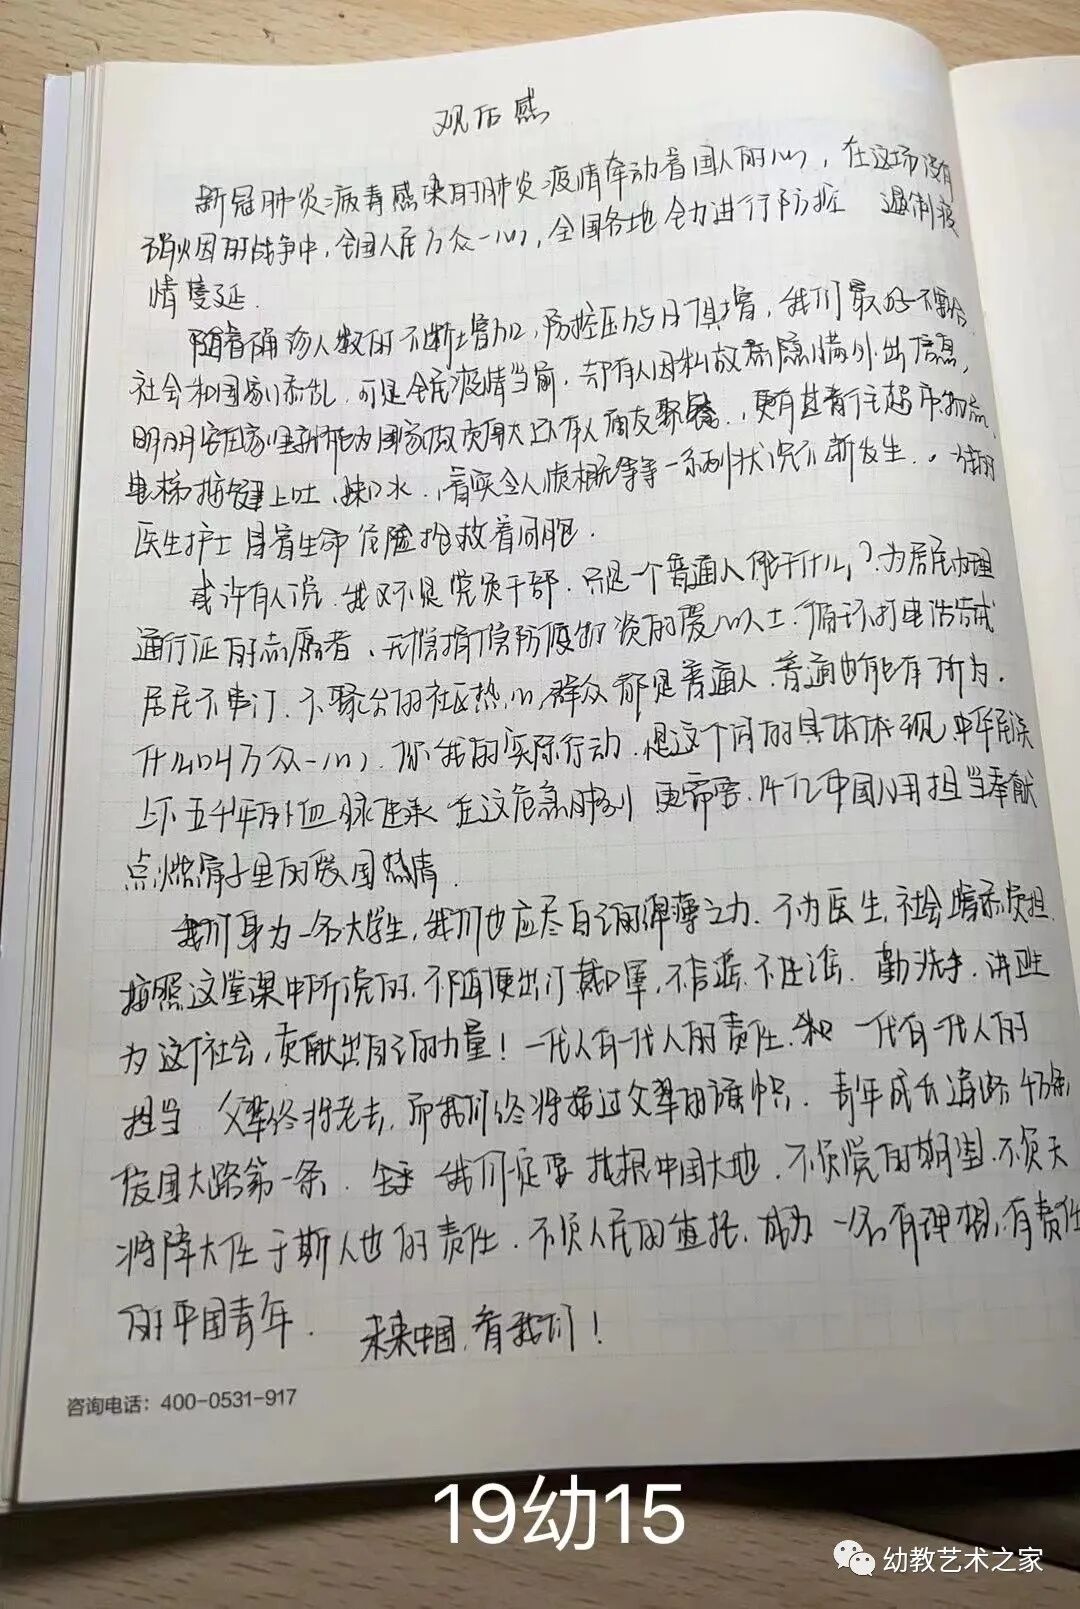 观后感
新冠肺炎病毒感染的肺炎疫情牵动着国人的心，在这场没有
硝烟的战争中，全国人民万众一心，全国各地全力进行防控 遏制疫
情蔓延.
随着确诊人数的不断增加，防控压力与日俱增，我们最好不要给
社会和国家添乱.可是全民疫情当前.却有人因私故意隐瞒外出信息，
明明安在家里就能为国家做贡献还有人朋友聚餐，更有甚者往超市物品、
电梯按键上吐口水.，着实令人愤慨等等一系列状况不断发生.。
医生护士冒着生命危险抢救着同胞.
或许有人说.我又不是党员干部.只是一个普通人能干什么？为居民办理
通行证的志愿者、无偿捐偿防疫物资的爱心人士.循环打电话告诫
居民不串门.不聚会的社区热心群众都是普通人.普通也能有所为.
什么叫万众一心.你我的实际行动.是这个词的具体体现.中华民族
上下五千年的血脉连承 在这危急时刻 更需要.14亿中国人用担当奉献
点燃骨子里的爱国热情.
我们身为一名大学生，我们也应尽自己的绵薄之力.不为医生，社会增添负担.
按照这堂课中所说的.不随便出门戴口罩，不信谣.不传谣.勤洗手.讲卫生
为这个社会，贡献出自己的力量！一代人有一代人的责任.和一代有一代人的
担当 父辈终将老去.而我们终将接过父辈的旗帜.青年成长道路千万条，
爱国大路第一条. 我们一定要扎根中国大地.不负党的期望.不负天
将降大任于斯人也的责任.不负人民的重托.成为一名有理想，有责任
的中国青年. 未来中国，有我们！
咨询电话：400-0531-917
19幼15
幼教艺术之家